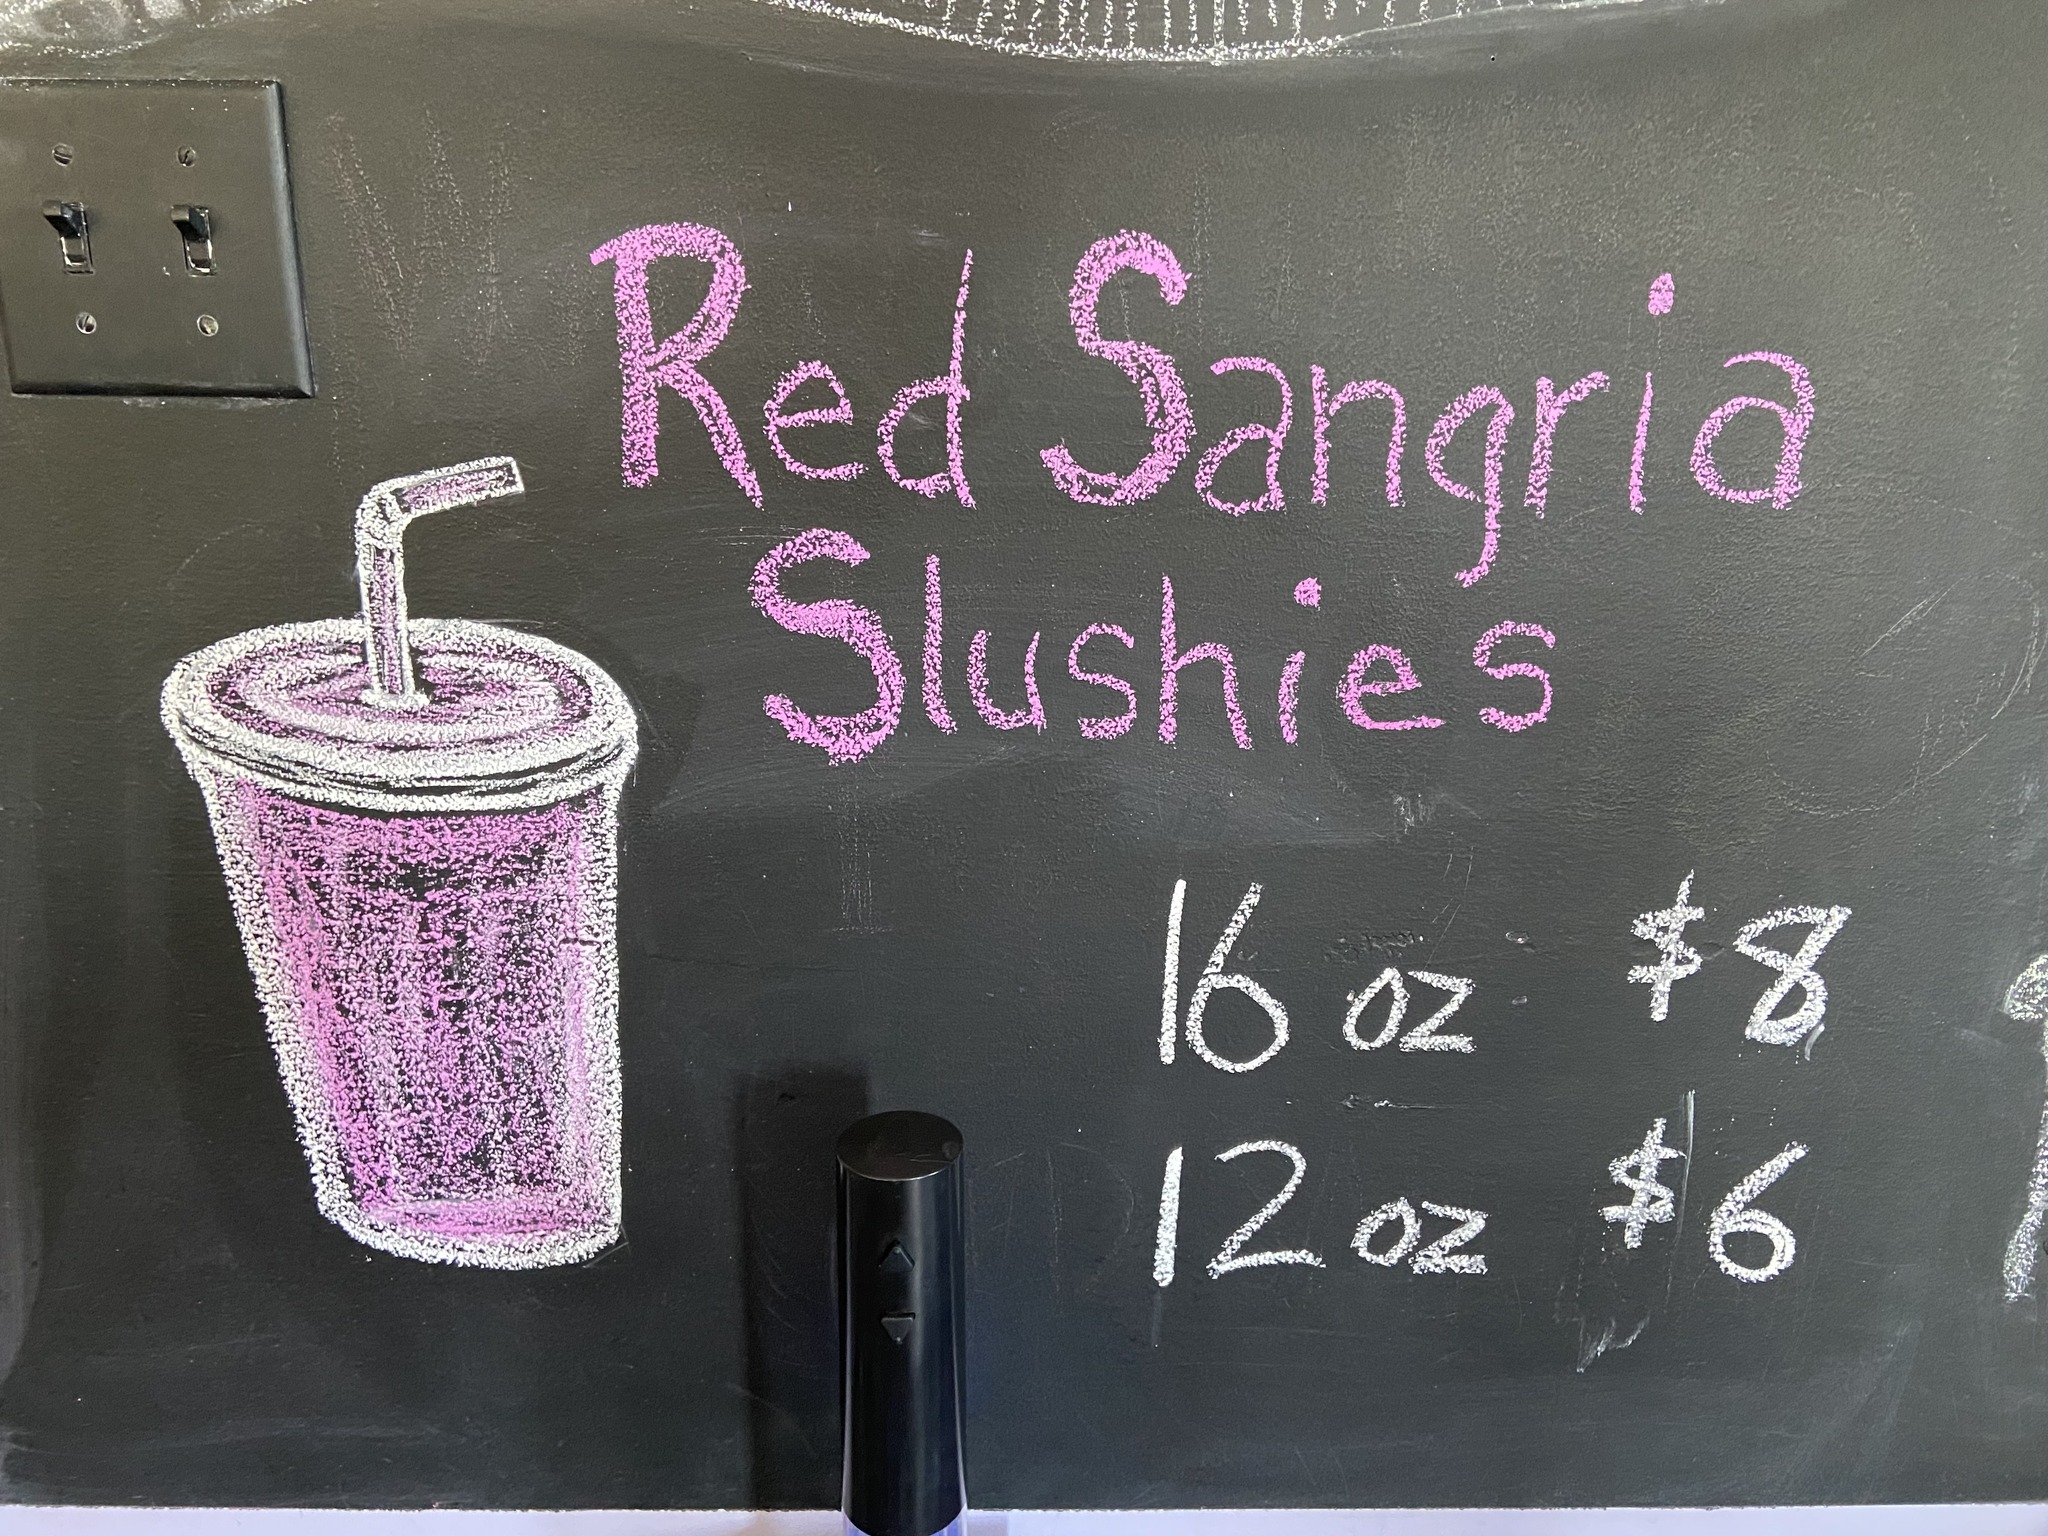 Red Sangria
Slushies
16 oz $8
12 oz $6